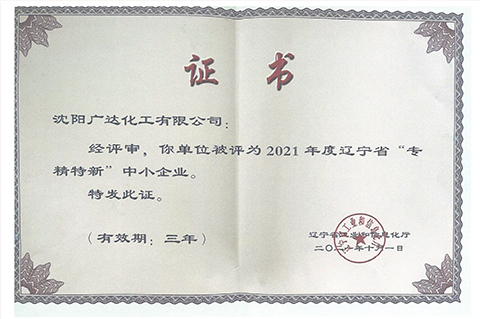 证书
沈阳广达化工有限公司：
经评审，你单位被评为2021年度辽宁省“专
精特新”中小企业。
特发此证。
（有效期：三年）
辽宁省工业和信息化厅
二〇二一年十月一日